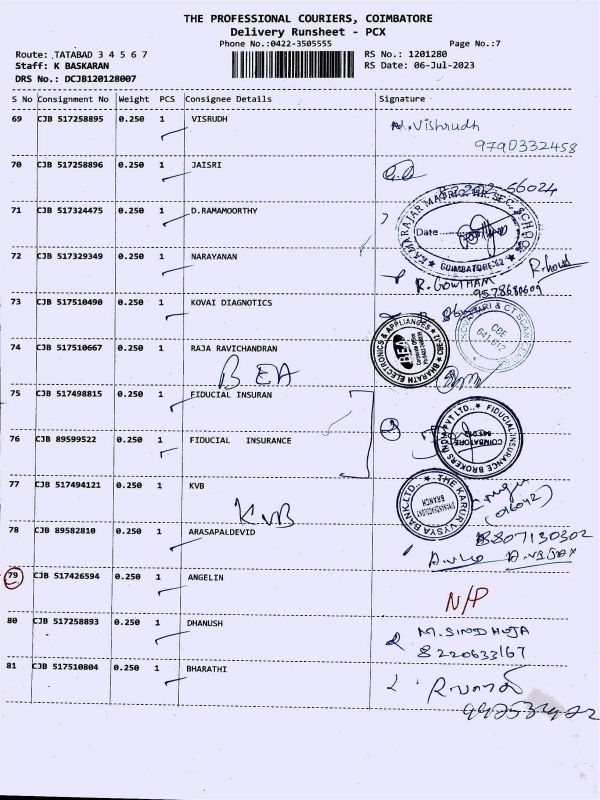 THE PROFESSIONAL COURIERS, COIMBATORE
Delivery Runsheet - PCX
Phone No.:0422-3505555 Page No.:7
Route: TATABAD 3 4 5 6 7 RS No.: 1201280
Staff: K BASKARAN RS Date: 06-Jul-2023
DRS No.: DCJB120128007
S No Consignment No Weight PCS Consignee Details Signature
69 CJB 517258895 0.250 1 VISRUDH
N. Vishrudh
9790332458
70 CJB 517258896 0.250 1 JAISRI
56024
71 CJB 517324475 0.250 1 D.RAMAMOORTHY
KAMARAJAR MATRIC. HR. SEC. SCHOOL
Date
COIMBATORE-12
72 CJB 517329349 0.250 1 NARAYANAN
R. GOWTHAM
9578680609
73 CJB 517510490 0.250 1 KOVAI DIAGNOTICS
74 CJB 517510667 0.250 1 RAJA RAVICHANDRAN
BEA
BHARATH ELECTRONICS & APPLIANCES
CBE-12
BEA
75 CJB 517498815 0.250 1 FIDUCIAL INSURAN
76 CJB 89599522 0.250 1 FIDUCIAL INSURANCE
FIDUCIAL INSURANCE BROKERS
PVT LTD.,
COIMBATORE
77 CJB 517494121 0.250 1 KVB
KVB
THE KARUR VYSYA BANK LTD.,
BRANCH
(016042)
78 CJB 89582810 0.250 1 ARASAPALDEVID
8807130302
A.VIJAY
79 CJB 517426594 0.250 1 ANGELIN
N/P
80 CJB 517258893 0.250 1 DHANUSH
M. SINDHUJA
8220633167
81 CJB 517510804 0.250 1 BHARATHI